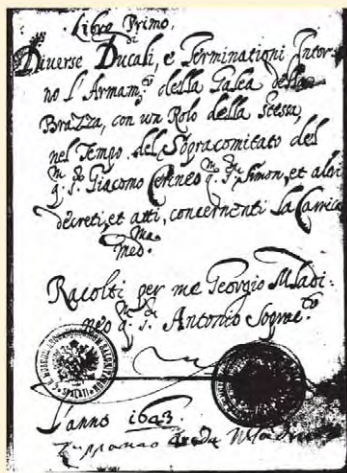 Libro Primo.
Di
Diverse Ducali, e Terminationi Intor
no l'Armam.to della Galea della
Brazza, con un Rolo della stessa,
nel Tempo del Sopracomitato del
m.to Giacomo Cerineo q. Simon, et altri
decreti, et atti, concernenti la Carrica
med.ma
Racolti per me Georgio Mladi:
neo q. Antonio Sopme.to
L'anno 1643.